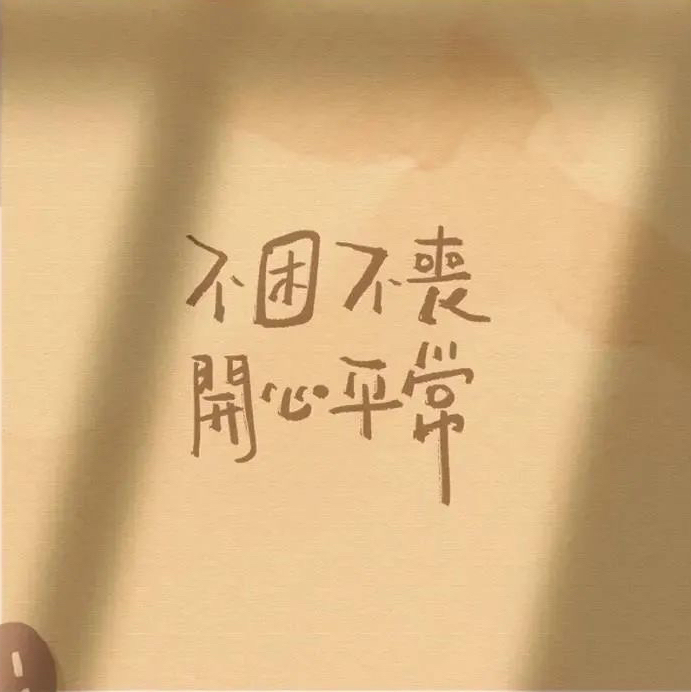 不困不喪
開心平常